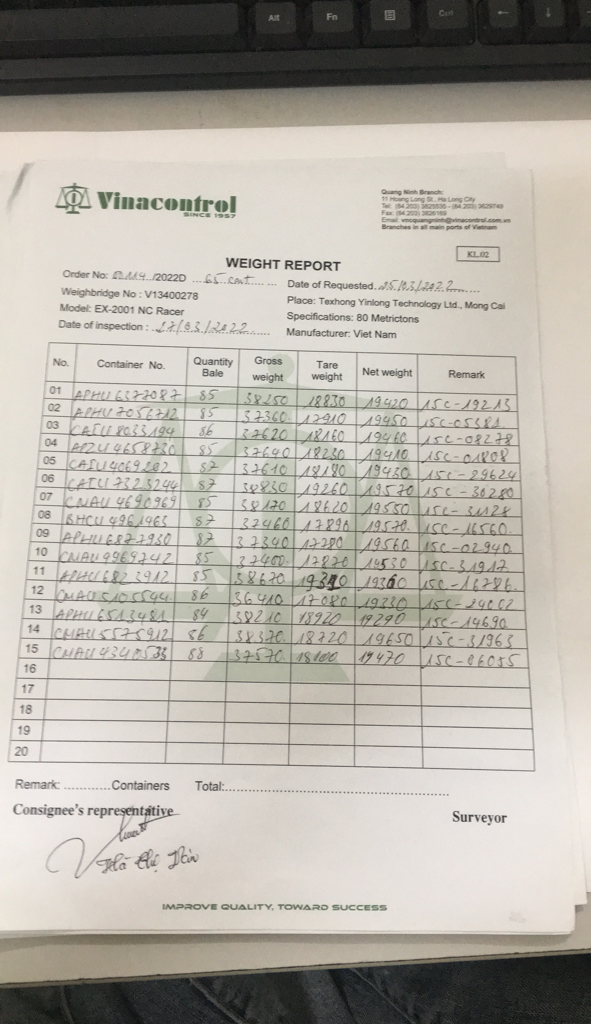 Alt
Fn
Ctrl
Vinacontrol
SINCE 1957
Quang Ninh Branch:
11 Hoang Long St., Ha Long City
Tel: (84.203) 3825535 - (84.203) 3829749
Fax: (84.203) 3826169
Email: vncquangninh@vinacontrol.com.vn
Branches in all main ports of Vietnam
KL.02
WEIGHT REPORT
Order No: /2022D 65 cont Date of Requested 25/03/2022
Weighbridge No : V13400278 Place: Texhong Yinlong Technology Ltd., Mong Cai
Model: EX-2001 NC Racer Specifications: 80 Metrictons
Date of inspection : 27/03/2022 Manufacturer: Viet Nam
No. Container No. Quantity Bale Gross weight Tare weight Net weight Remark
01 APHU6377087 85 38250 18830 19420 15C-19213
02 APHU7056712 85 37360 17910 19450 15C-05381
03 CAIU8033194 86 37620 18160 19460 15C-08278
04 APZU4658730 85 37640 18230 19410 15C-01808
05 CAIU4069202 87 37610 18180 19430 15C-29624
06 CAIU7323244 87 38830 19260 19570 15C-30280
07 CMAU4690969 85 38170 18620 19550 15C-31128
08 BHCU4961963 87 37460 17890 19570 15C-16560
09 APHU6877930 87 37340 17780 19560 15C-02940
10 CMAU9969742 85 37400 17870 19530 15C-31917
11 APHU6823912 85 38670 19310 19360 15C-16786
12 CMAU5105544 86 36410 17080 19330 15C-24002
13 APHU6513481 84 38210 18920 19290 15C-14690
14 CMAU5575912 86 38370 18720 19650 15C-31963
15 CMAU4340533 88 37570 18100 19470 15C-06055
16
17
18
19
20
Remark: ...........Containers Total:......................................................
Consignee's representative Surveyor
IMPROVE QUALITY, TOWARD SUCCESS